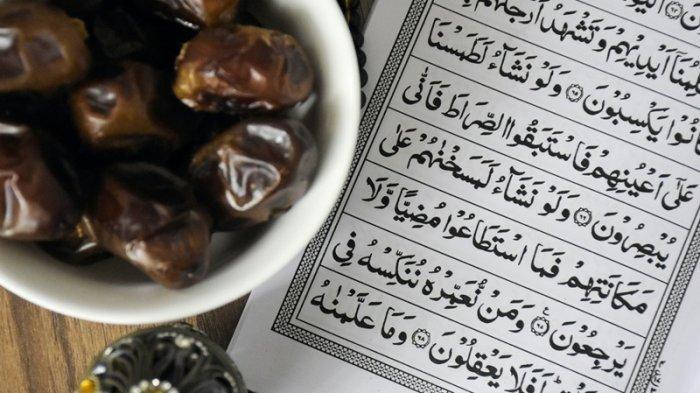 اَيْدِيْهِمْ وَتَشْهَدُ اَرْجُلُهُمْ
يَكْسِبُوْنَ ﴿٦٥﴾ وَلَوْ نَشَآءُ لَطَمَسْنَا
عَلٰٓى اَعْيُنِهِمْ فَاسْتَبَقُوا الصِّرَاطَ فَاَنّٰى
يُبْصِرُوْنَ ﴿٦٦﴾ وَلَوْ نَشَآءُ لَمَسَخْنٰهُمْ عَلٰى
مَكَانَتِهِمْ فَمَا اسْتَطَاعُوْا مُضِيًّا وَّلَا
يَرْجِعُوْنَ ﴿٦٧﴾ وَمَنْ نُّعَمِّرْهُ نُنَكِّسْهُ فِى
اَفَلَا يَعْقِلُوْنَ ﴿٦٨﴾ وَمَا عَلَّمْنٰهُ